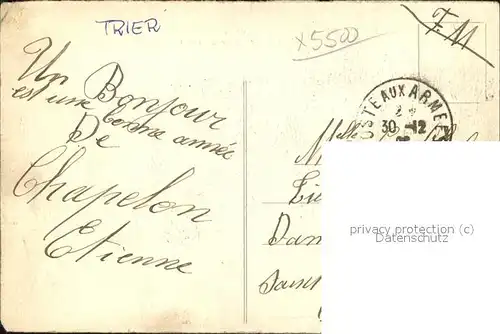 TRIER
x5500
F.M
Un Bonjour
est une bonne année
De
Chapelon
Etienne
POSTE AUX ARMEES
30-12
Melle
Dan
Saint
privacy protection (c)
Datenschutz